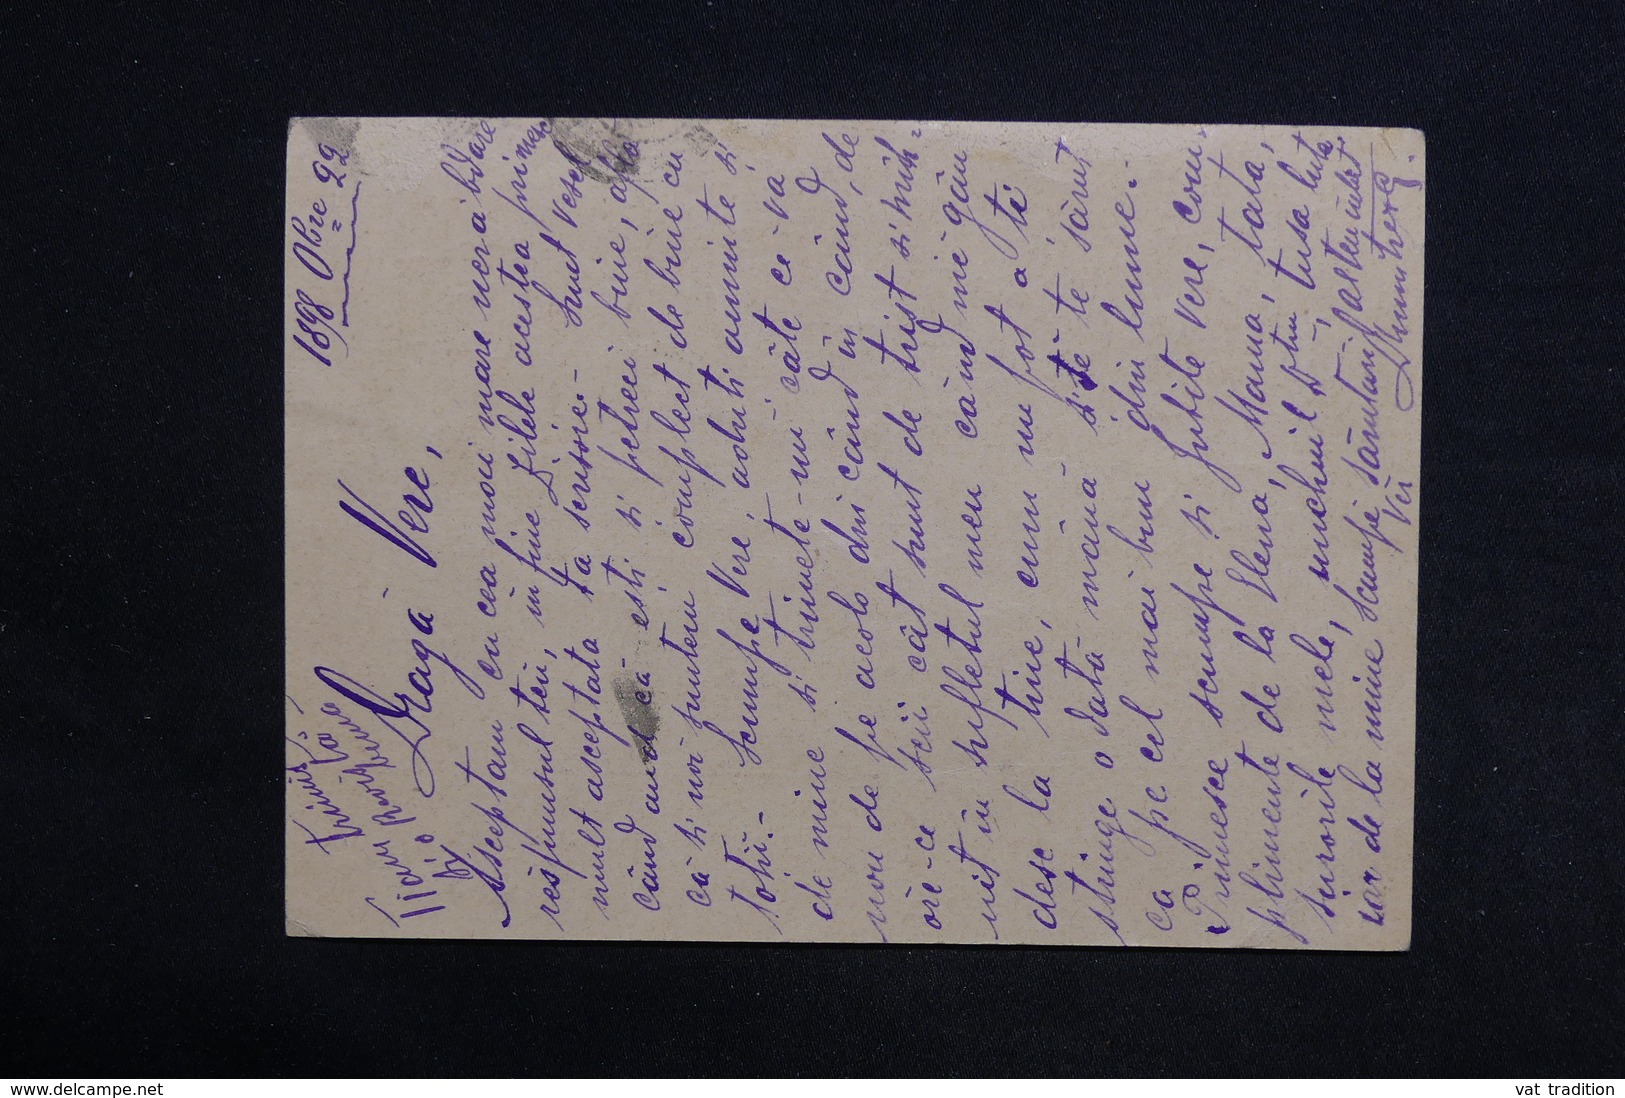 1898 Obre 22
Dragă Vere,
Asceptam cu cea mai mare nerăbdare
respunsul teu, in fine zilele acestea primes
mult asceptata ta scrisóre.- Sunt vesel
cănd aud că esti si petreci bine, afla
că si noi suntem complect de bine cu
totii.- Scumpe Vere, adu-ti aminte si
de mine si trimete-mi căte ce-va
nou de pe acolo din cănd in cănd, de
óre-ce scii căt sunt de trist si mih=
nit in sufletul meu cănd mĕ găn
desc la tine, cum nu pot a 'ti
stringe o dată măna si sĕ te sărut
ca pe cel mai bun din lume.
Primesce scumpe si iubite Vere, com-
plimente de la Elena, Mama, tata,
surorile mele, unchiul Dtru, tusa
iar de la mine scumpe sărutari
Vĕr
www.delcampe.net
vat tradition